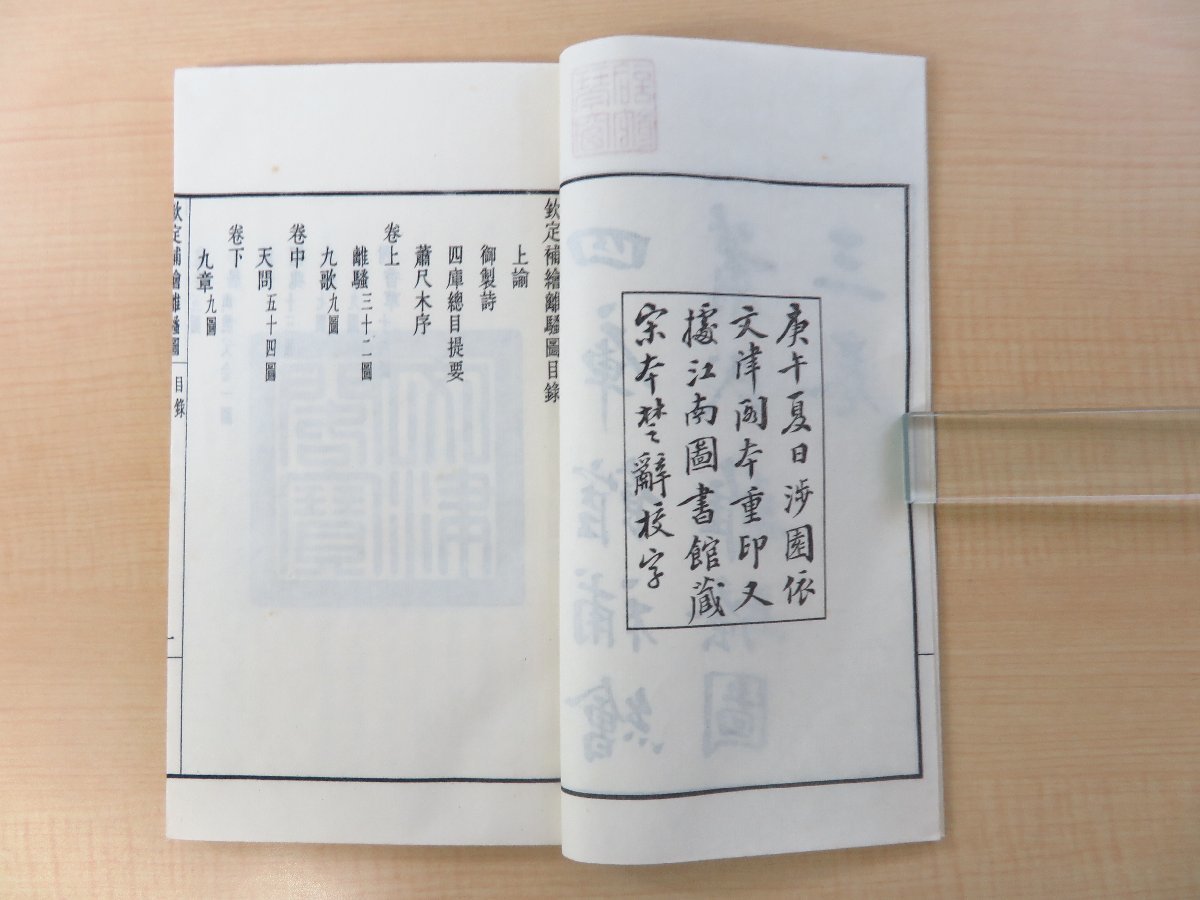 庚午夏日涉園依
文津閣本重印又
據江南圖書館藏
宋本楚辭校字
欽定補繪離騷圖目錄
上諭
御製詩
四庫總目提要
蕭尺木序
卷上
離騷三十二圖
九歌九圖
卷中
天問五十四圖
卷下
九章九圖
欽定補繪離騷圖 目錄 一